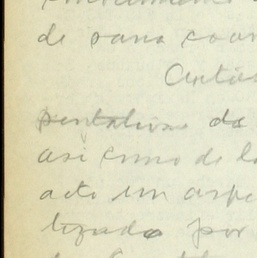 de sana coor
Artís
pentativas de
así como de lo
acto un aspe
lizado por